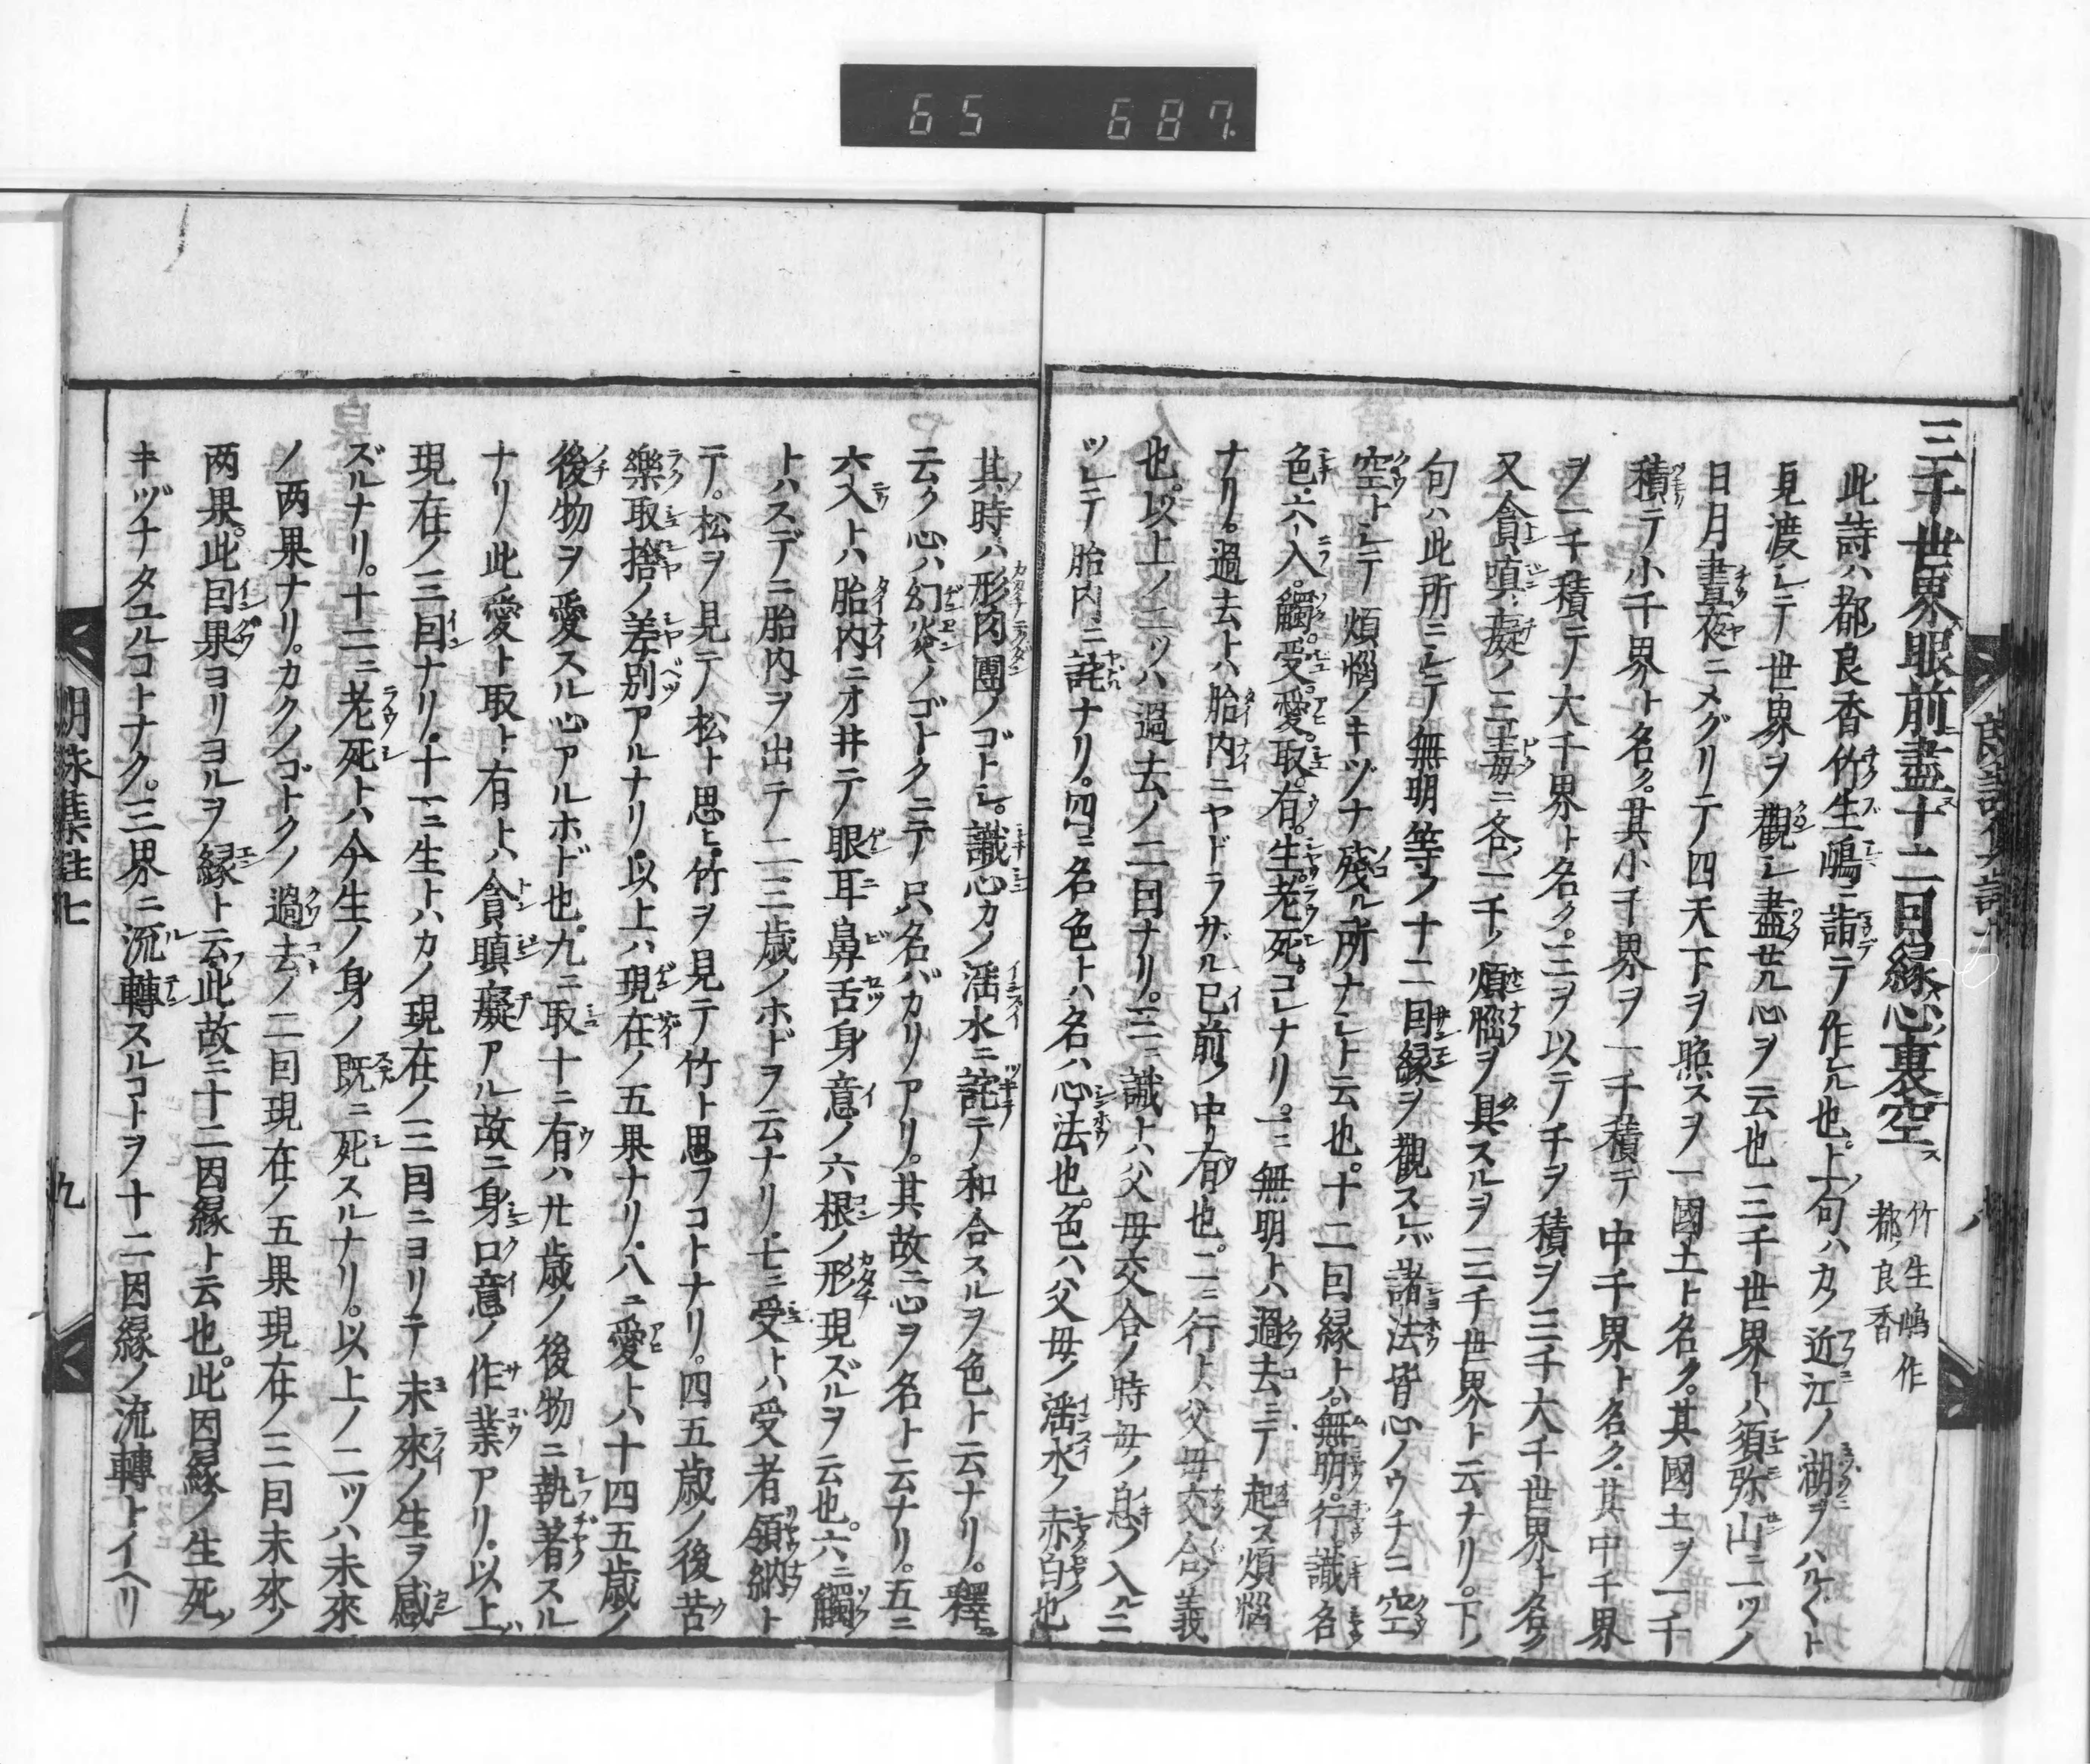 65 687
三千世界眼前盡十二因縁心裏空
竹生嶋作
都良香
此詩ハ都良香竹生嶋ニ詣テ作レル也。上句ハカノ近江ノ湖ヲハル〱ト
見渡シテ世界ヲ觀シ盡セル心ヲ云也三千世界トハ須弥山ニ一ツノ
日月晝夜ニメグリテ四天下ヲ照スヲ一國土ト名ク。其國土ヲ一千
積テ小千界ト名ク。其小千界ヲ一千積テ中千界ト名ク。其中千界
ヲ一千積テ大千界ト名ク。三ヲ以テ千ヲ積ヲ三千大千世界ト名ク
又貪嗔癡ノ三毒ニ各一千ノ煩惱ヲ具スルヲ三千世界ト云ナリ。下ノ
句ハ此所ニシテ無明等ノ十二因縁ヲ觀スレバ諸法皆心ノウチニ空
空トシテ煩惱ノキヅナ殘ル所ナシト云也。十二因縁トハ。無明。行。識。名
色。六入。觸。受。愛。取。有。生。老死。コレナリ。一ニ無明トハ過去ニテ起ス煩惱
ナリ。過去トハ胎内ニヤドラザル已前ノ中有也。二ニ行トハ父母交合ノ義
也。以上ノ二ツハ過去ノ二因ナリ。三ニ識トハ父母交合ノ時母ノ息ノ入ルニ
ツレテ胎内ニ詫ナリ。四ニ名色トハ名ハ心法也。色ハ父母ノ淫水ノ赤白也
其時ハ形肉團ノゴトシ。識心カノ淫水ニ詫テ和合スルヲ色ト云ナリ。釋ニ
云ク心ハ幻炎ノゴトクニテ只名バカリノアリ。其故ニ心ヲ名ト云ナリ。五ニ
六入トハ胎内ニオ井テ眼耳鼻舌身意ノ六根ノ形現ズルヲ云也。六ニ觸
トハスデニ胎内ヲ出テ二三歳ノホドヲ云ナリ。七ニ受トハ受者領納ト
テ。松ヲ見テ松ト思ヒ竹ヲ見テ竹ト思フコトナリ。四五歳ノ後苦
樂取捨ノ差別アルナリ。以上ハ現在ノ五果ナリ。八ニ愛トハ十四五歳ノ
後物ヲ愛スル心アルホド也。九ニ取十ニ有ハ廿歳ノ後物ニ執著スル
ナリ此愛ト取ト有トハ貪瞋癡アル故ニ身口意ノ作業アリ。以上ハ
現在ノ三因ナリ。十一ニ生トハカノ現在ノ三因ニヨリテ未來ノ生ヲ感
ズルナリ。十二ニ老死トハ今生ノ身ノ既ニ死スルナリ。以上ノ二ツハ未來
ノ両果ナリ。カクノゴトクノ過去ノ二因現在ノ五果現在ノ三因未來ノ
両果。此因果ヨリヨルヲ縁ト云フ此故ニ十二因縁ト云也。此因縁ノ生死ノ
キヅナタユルコトナク。三界ニ流轉スルコトヲ十二因縁ノ流轉トイヘリ
朗詠集註七
九